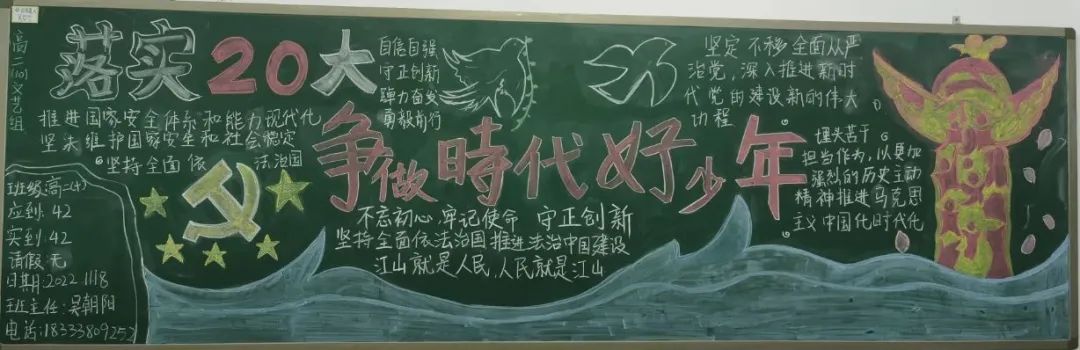 高二(10)文艺组
落实20大
自信自强
守正创新
踔力奋发
勇毅前行
推进国家安全体系和能力现代化
坚失维护国家安全和社会稳定
坚持全面依法治国
争做時代好少年
不忘初心 牢记使命 守正创新
坚持全面依法治国 推进法治中国建设
江山就是人民,人民就是江山
坚定不移全面从严
治党,深入推进新时
代党的建设新的伟大
功程
担当作为,以更加
强烈的历史主动
精神推进马克思
主义中国化时代化
班级:高二(十)
应到:42
实到:42
请假:无
日期:2022 1118
班主任:吴朝阳
电话:18333809252